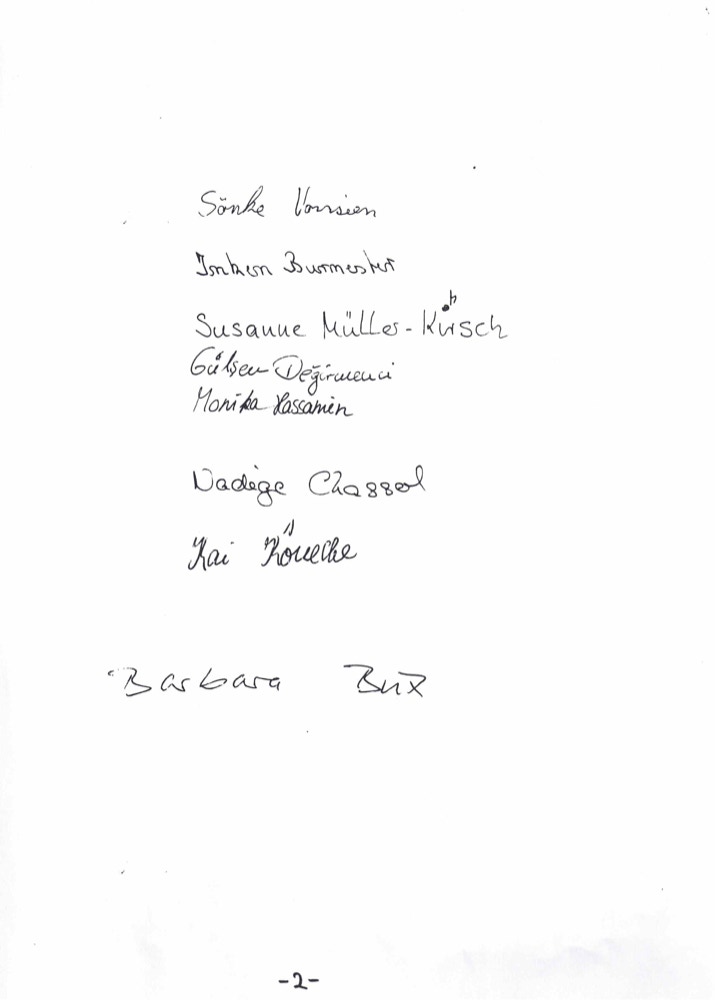 Sönke
Inken Burmester
Susanne Müller-Kirsch
Gülşen Değirmenci
Monika Hassamin
Nadège Chassol
Kai Könecke
Barbara Bux
-2-